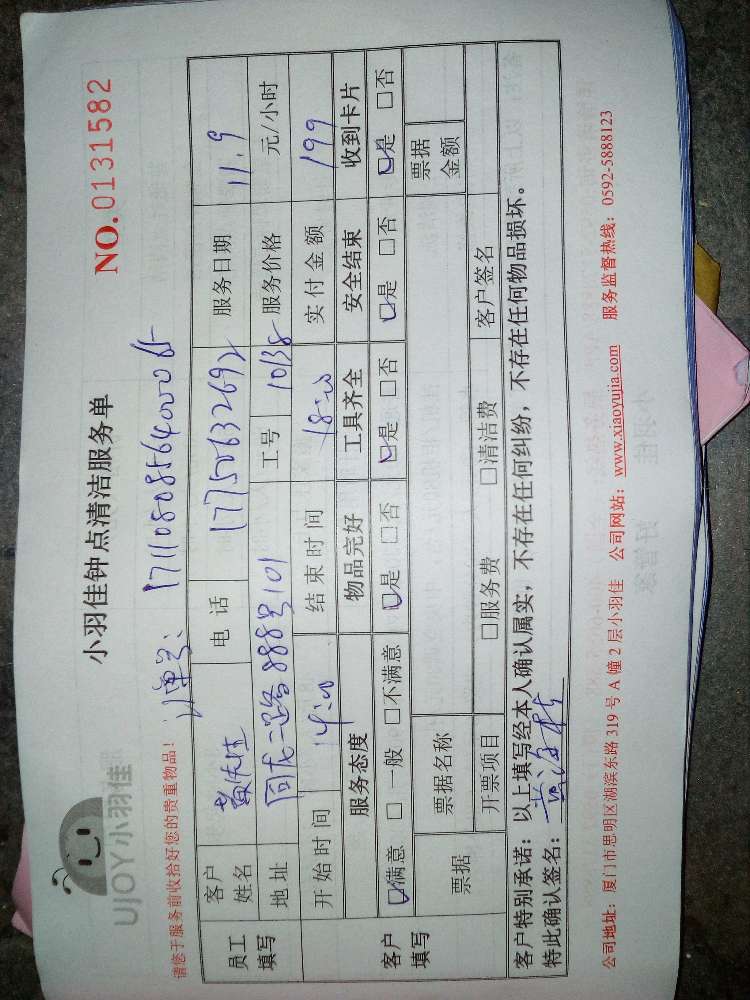 UJOY小羽佳
小羽佳钟点清洁服务单
NO.0131582
请您于服务前收拾好您的贵重物品!
订单号: 171108085640006
员工填写 客户姓名 电话 17750632692 服务日期 11.9
地址 同龙二路888号101 工号 10138 服务价格 元/小时
客户填写 开始时间 14:00 结束时间 18:00 实付金额 199
服务态度 物品完好 工具齐全 安全结束 收到卡片
☑满意 □一般 □不满意 ☑是 □否 ☑是 □否 ☑是 □否 ☑是 □否
票据 票据名称 票据金额
开票项目 □服务费 □清洁费 客户签名
客户特别承诺: 以上填写经本人确认属实,不存在任何纠纷,不存在任何物品损坏。
特此确认签名:
公司地址: 厦门市思明区湖滨东路 319 号 A 幢 2 层小羽佳 公司网站: www.xiaoyujia.com 服务监督热线: 0592-5888123